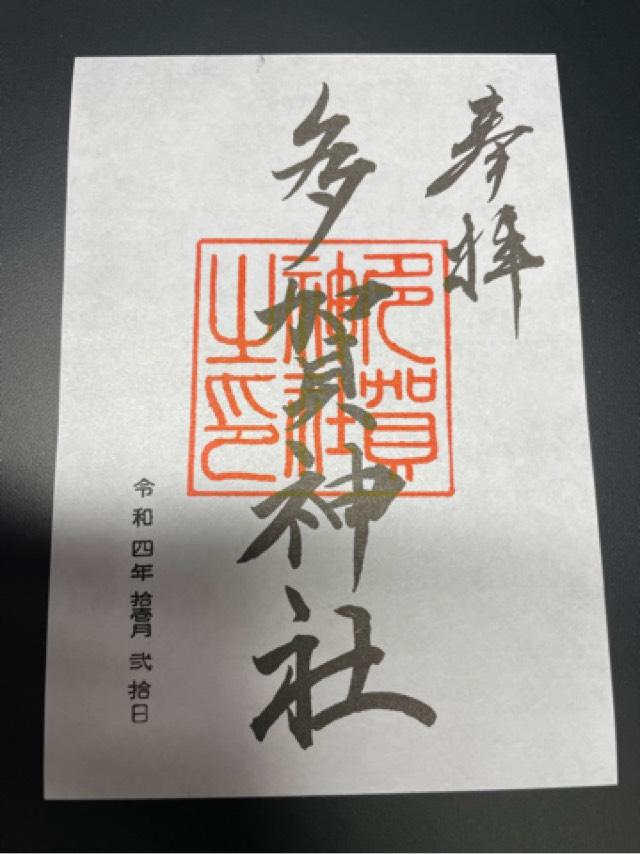 奉拝
多賀神社
多賀
神社
之印
令和四年拾壱月弐拾日